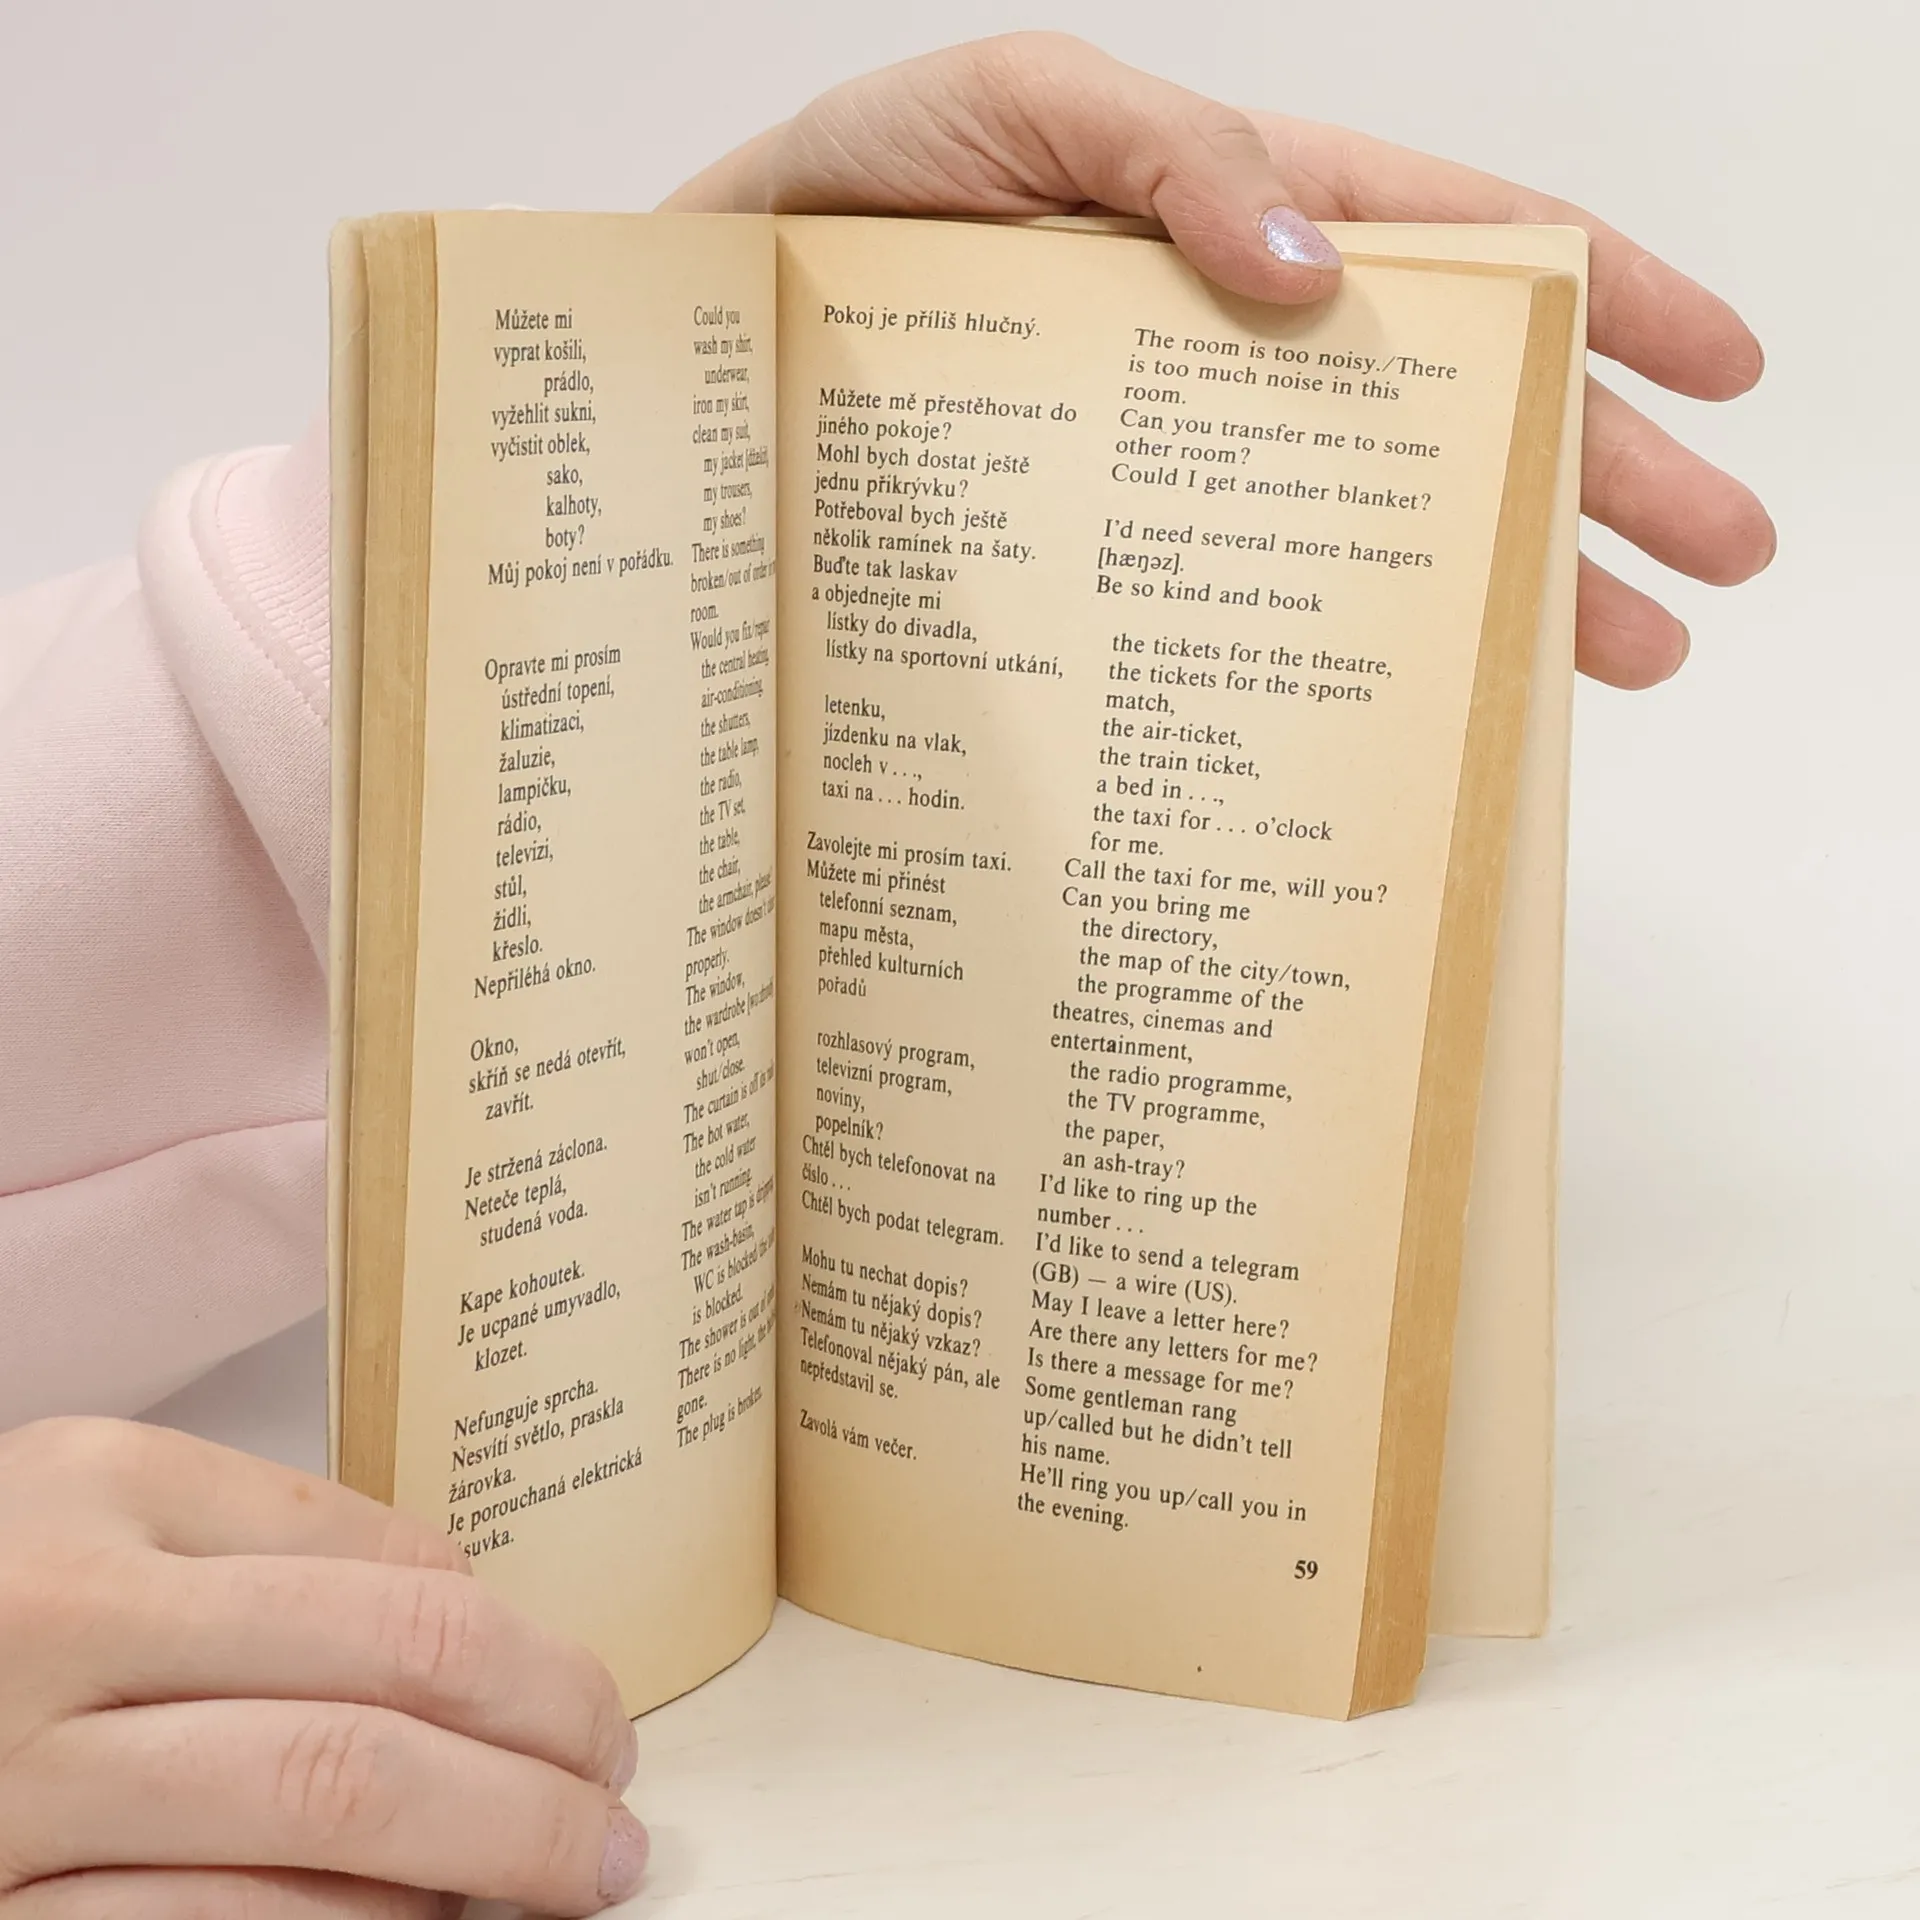 Můžete mi
vyprat košili,
prádlo,
vyžehlit sukni,
vyčistit oblek,
sako,
kalhoty,
boty?
Můj pokoj není v pořádku.
Opravte mi prosím
ústřední topení,
klimatizaci,
žaluzie,
lampičku,
rádio,
televizi,
stůl,
židli,
křeslo.
Nepřiléhá okno.
Okno,
skříň se nedá otevřít,
zavřít.
Je stržená záclona.
Neteče teplá,
studená voda.
Kape kohoutek.
Je ucpané umyvadlo,
klozet.
Nefunguje sprcha.
Nesvítí světlo, praskla
žárovka.
Je porouchaná elektrická
Could you
wash my shirt,
underwear,
iron my skirt,
clean my suit,
my jacket
my trousers,
my shoes?
There is something
broken/out of order
room.
Would you fix/repair
the central heating,
air-conditioning,
the shutters,
the table lamp,
the radio,
the TV set,
the table,
the chair,
the armchair, please?
The window doesn't
properly.
The window,
the wardrobe
won't open,
shut/close.
The curtain is off its
The hot water,
the cold water
isn't running.
The water tap is
The wash-basin,
WC is blocked/the
is blocked.
The shower is out of
There is no light, the
gone.
The plug is broken.
Pokoj je příliš hlučný.
Můžete mě přestěhovat do
jiného pokoje?
Mohl bych dostat ještě
jednu přikrývku?
Potřeboval bych ještě
několik ramínek na šaty.
Buďte tak laskav
a objednejte mi
lístky do divadla,
lístky na sportovní utkání,
letenku,
jízdenku na vlak,
nocleh v . . .,
taxi na . . . hodin.
Zavolejte mi prosím taxi.
Můžete mi přinést
telefonní seznam,
mapu města,
přehled kulturních
pořadů
rozhlasový program,
televizní program,
noviny,
popelník?
Chtěl bych telefonovat na
číslo . . .
Chtěl bych podat telegram.
Mohu tu nechat dopis?
Nemám tu nějaký dopis?
Nemám tu nějaký vzkaz?
Telefonoval nějaký pán, ale
nepředstavil se.
Zavolá vám večer.
The room is too noisy./There
is too much noise in this
room.
Can you transfer me to some
other room?
Could I get another blanket?
I'd need several more hangers
[hæŋəz].
Be so kind and book
the tickets for the theatre,
the tickets for the sports
match,
the air-ticket,
the train ticket,
a bed in . . .,
the taxi for . . . o'clock
for me.
Call the taxi for me, will you?
Can you bring me
the directory,
the map of the city/town,
the programme of the
theatres, cinemas and
entertainment,
the radio programme,
the TV programme,
the paper,
an ash-tray?
I'd like to ring up the
number . . .
I'd like to send a telegram
(GB) — a wire (US).
May I leave a letter here?
Are there any letters for me?
Is there a message for me?
Some gentleman rang
up/called but he didn't tell
his name.
He'll ring you up/call you in
the evening.
59